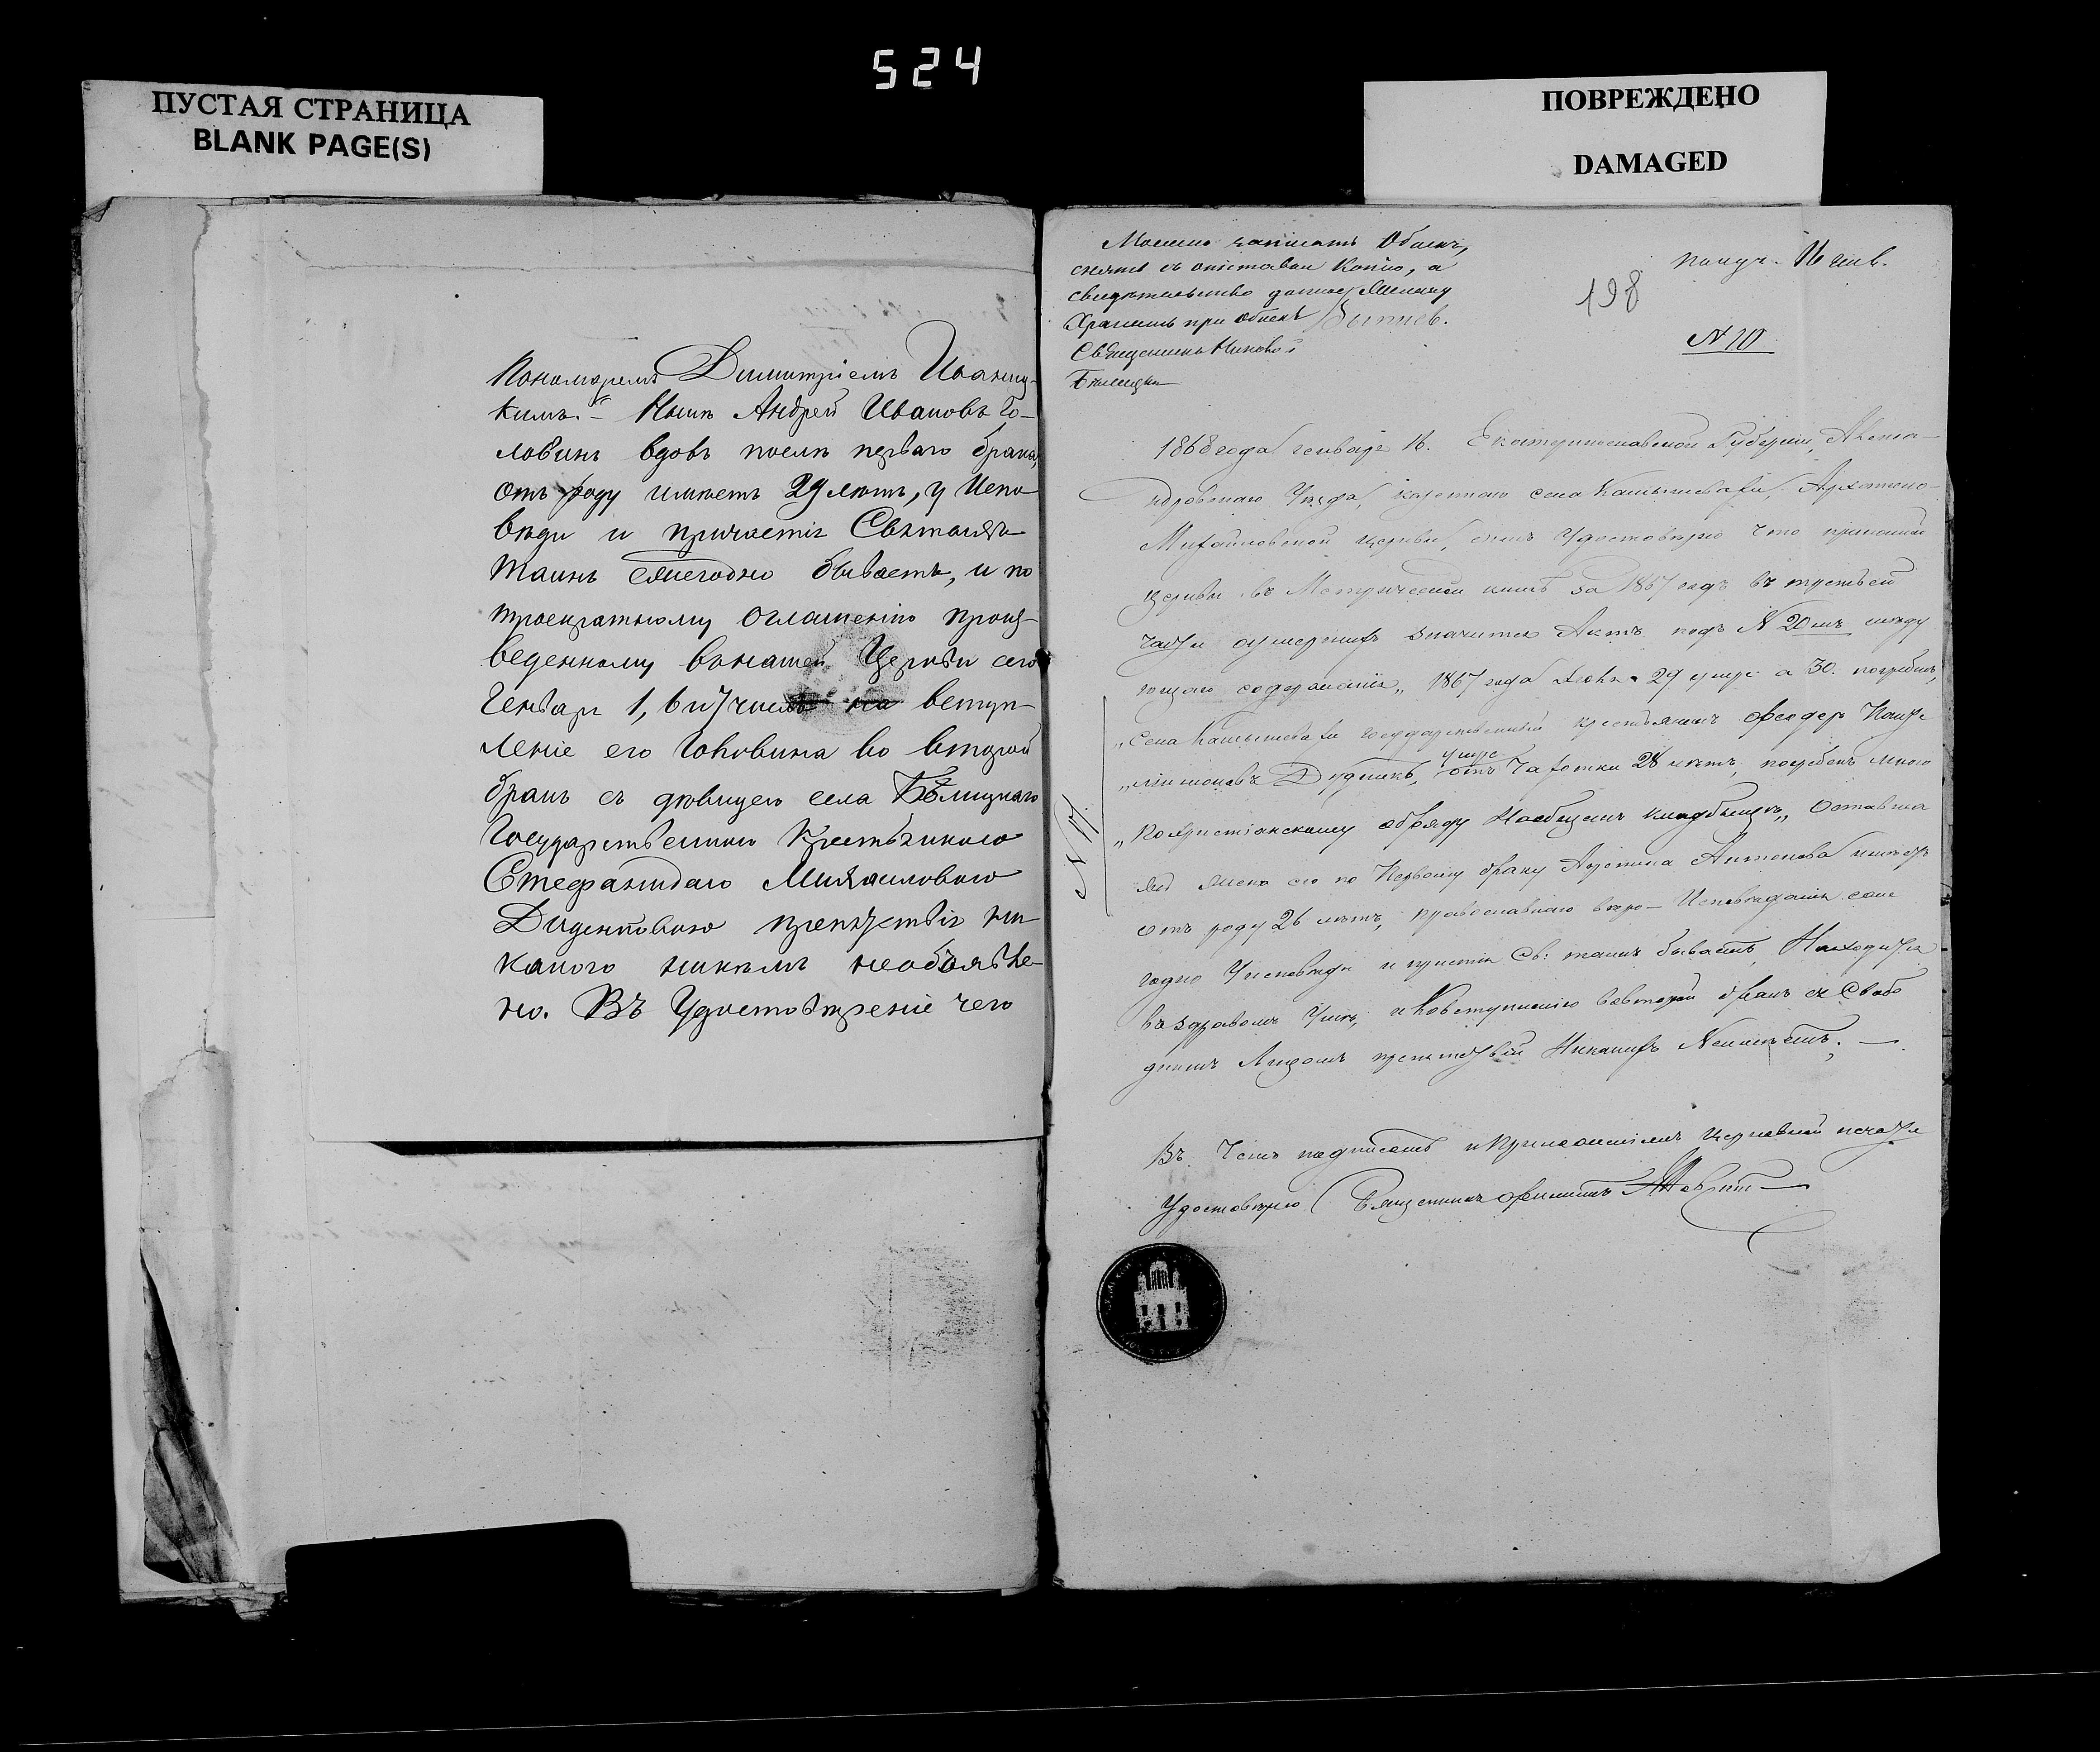 524
ПУСТАЯ СТРАНИЦА
BLANK PAGE(S)
ПОВРЕЖДЕНО
DAMAGED
Пономаремъ Димитріемъ Иваниц-
кимъ. – Нынѣ Андрей Ивановъ Го-
ловинъ вдовъ послѣ перваго брака,
отъ роду имѣетъ 29 лѣтъ, у Испо
вѣди и причастія Святыхъ
Таинъ ежегодно бываетъ, и по
троекратному оглашенію произ-
веденному внашей Церкви сего
Генваря 1, 6 и 7 числъ на вступ-
леніе его Головина во второй
бракъ съ дѣвицею села Бѣлицкаго
Государственною Крестьянкою
Стефанидаю Михаиловою
Диденковою препятствія ни-
какого никѣмъ необъявле-
но. Въ Удостовѣреніе чего
Можно записать Обыскъ,
снять съ Копію, а
свидѣтельство данное
Хранить при Обыскѣ
Священникъ
198
получ. 16 генв.
N 10
1868 года генваря 16. Екатеринославской Губерніи, Алекса-
ндровскаго Уѣзда, казеннаго села Архангело-
Михайловской церкви, симъ Удостовѣряю что приходской
церкви въ Метрической книгѣ за 1867 годъ въ третьей
части оумершихъ значится Актъ подъ N 20мъ слѣду
ющаго содержанія „ 1867 года 29 умре а 30. погребенъ,
„ Села государственный крестьянинъ Феодоръ
„ Дудникъ, умре отъ Чахотки 28 лѣтъ, погребенъ мною
„ По Христіанскому обряду Наобщемъ кладбищѣ „ Оставша
яся жена его по Первому браку Антонова имѣетъ
отъ роду 26 лѣтъ, православнаго вѣро– Исповѣданія еже
годно Уисповѣди и причастія Св: таинъ бываетъ, Находится
въ здравомъ Умѣ, и Ковступленію вовторой бракъ съ Свобо
днымъ Лицомъ препятствій Никакихъ Неимѣетъ. —
N 17.
Въ Чемъ подписомъ и Приложеніемъ Церковной печати
Удостовѣряю Священникъ